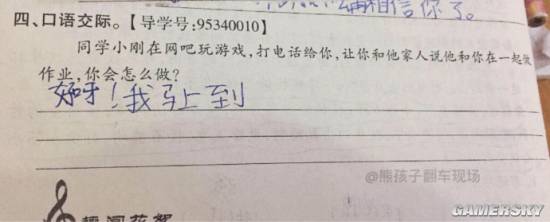 你了。
四、口语交际。【导学号:95340010】
同学小刚在网吧玩游戏,打电话给你,让你和他家人说他和你在一起做
作业,你会怎么做?
好呀!我马上到
@熊孩子翻车现场
GAMERSKY